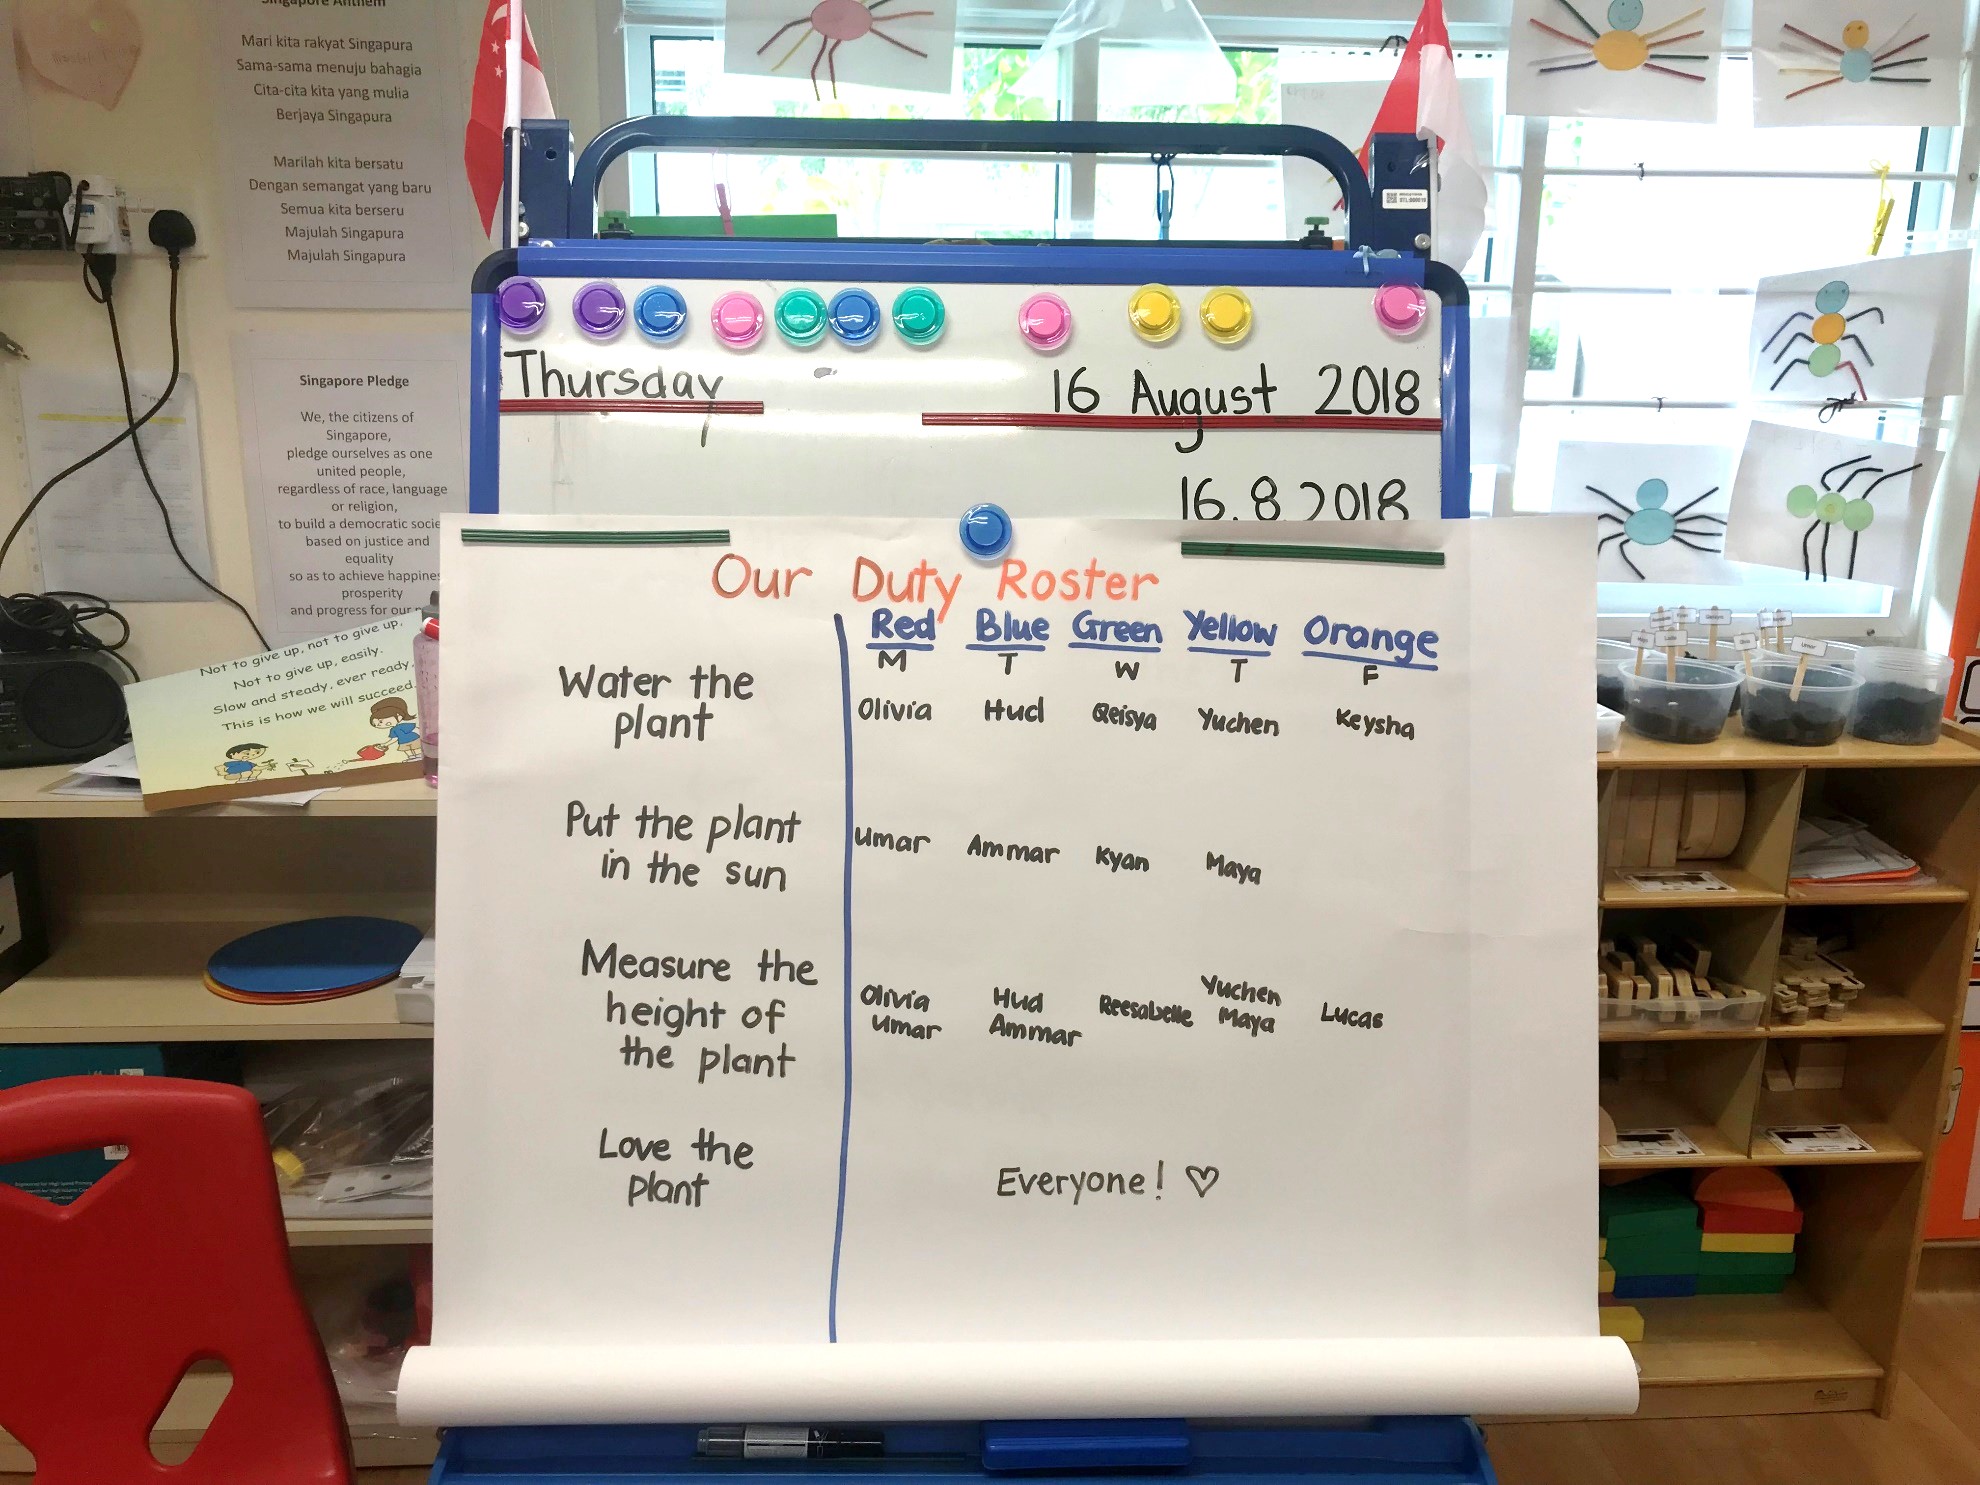 Singapore Anthem
Mari kita rakyat Singapura
Sama-sama menuju bahagia
Cita-cita kita yang mulia
Berjaya Singapura
Marilah kita bersatu
Dengan semangat yang baru
Semua kita berseru
Majulah Singapura
Majulah Singapura
Singapore Pledge
We, the citizens of
Singapore,
pledge ourselves as one
united people,
regardless of race, language
or religion,
to build a democratic socie
based on justice and
equality
so as to achieve happines
prosperity
and progress for our
Not to give up, not to give up,
Not to give up, easily.
Slow and steady, ever ready.
This is how we will succeed.
Thursday 16 August 2018
16.8.2018
Our Duty Roster
Red Blue Green Yellow Orange
M T W T F
Water the
plant
Olivia Hud Qeisya Yuchen Keysha
Put the plant
in the sun
Umar Ammar Kyan Maya
Measure the
height of
the plant
Olivia Hud Reesabelle Yuchen Lucas
Umar Ammar Maya
Love the
plant
Everyone! ♡